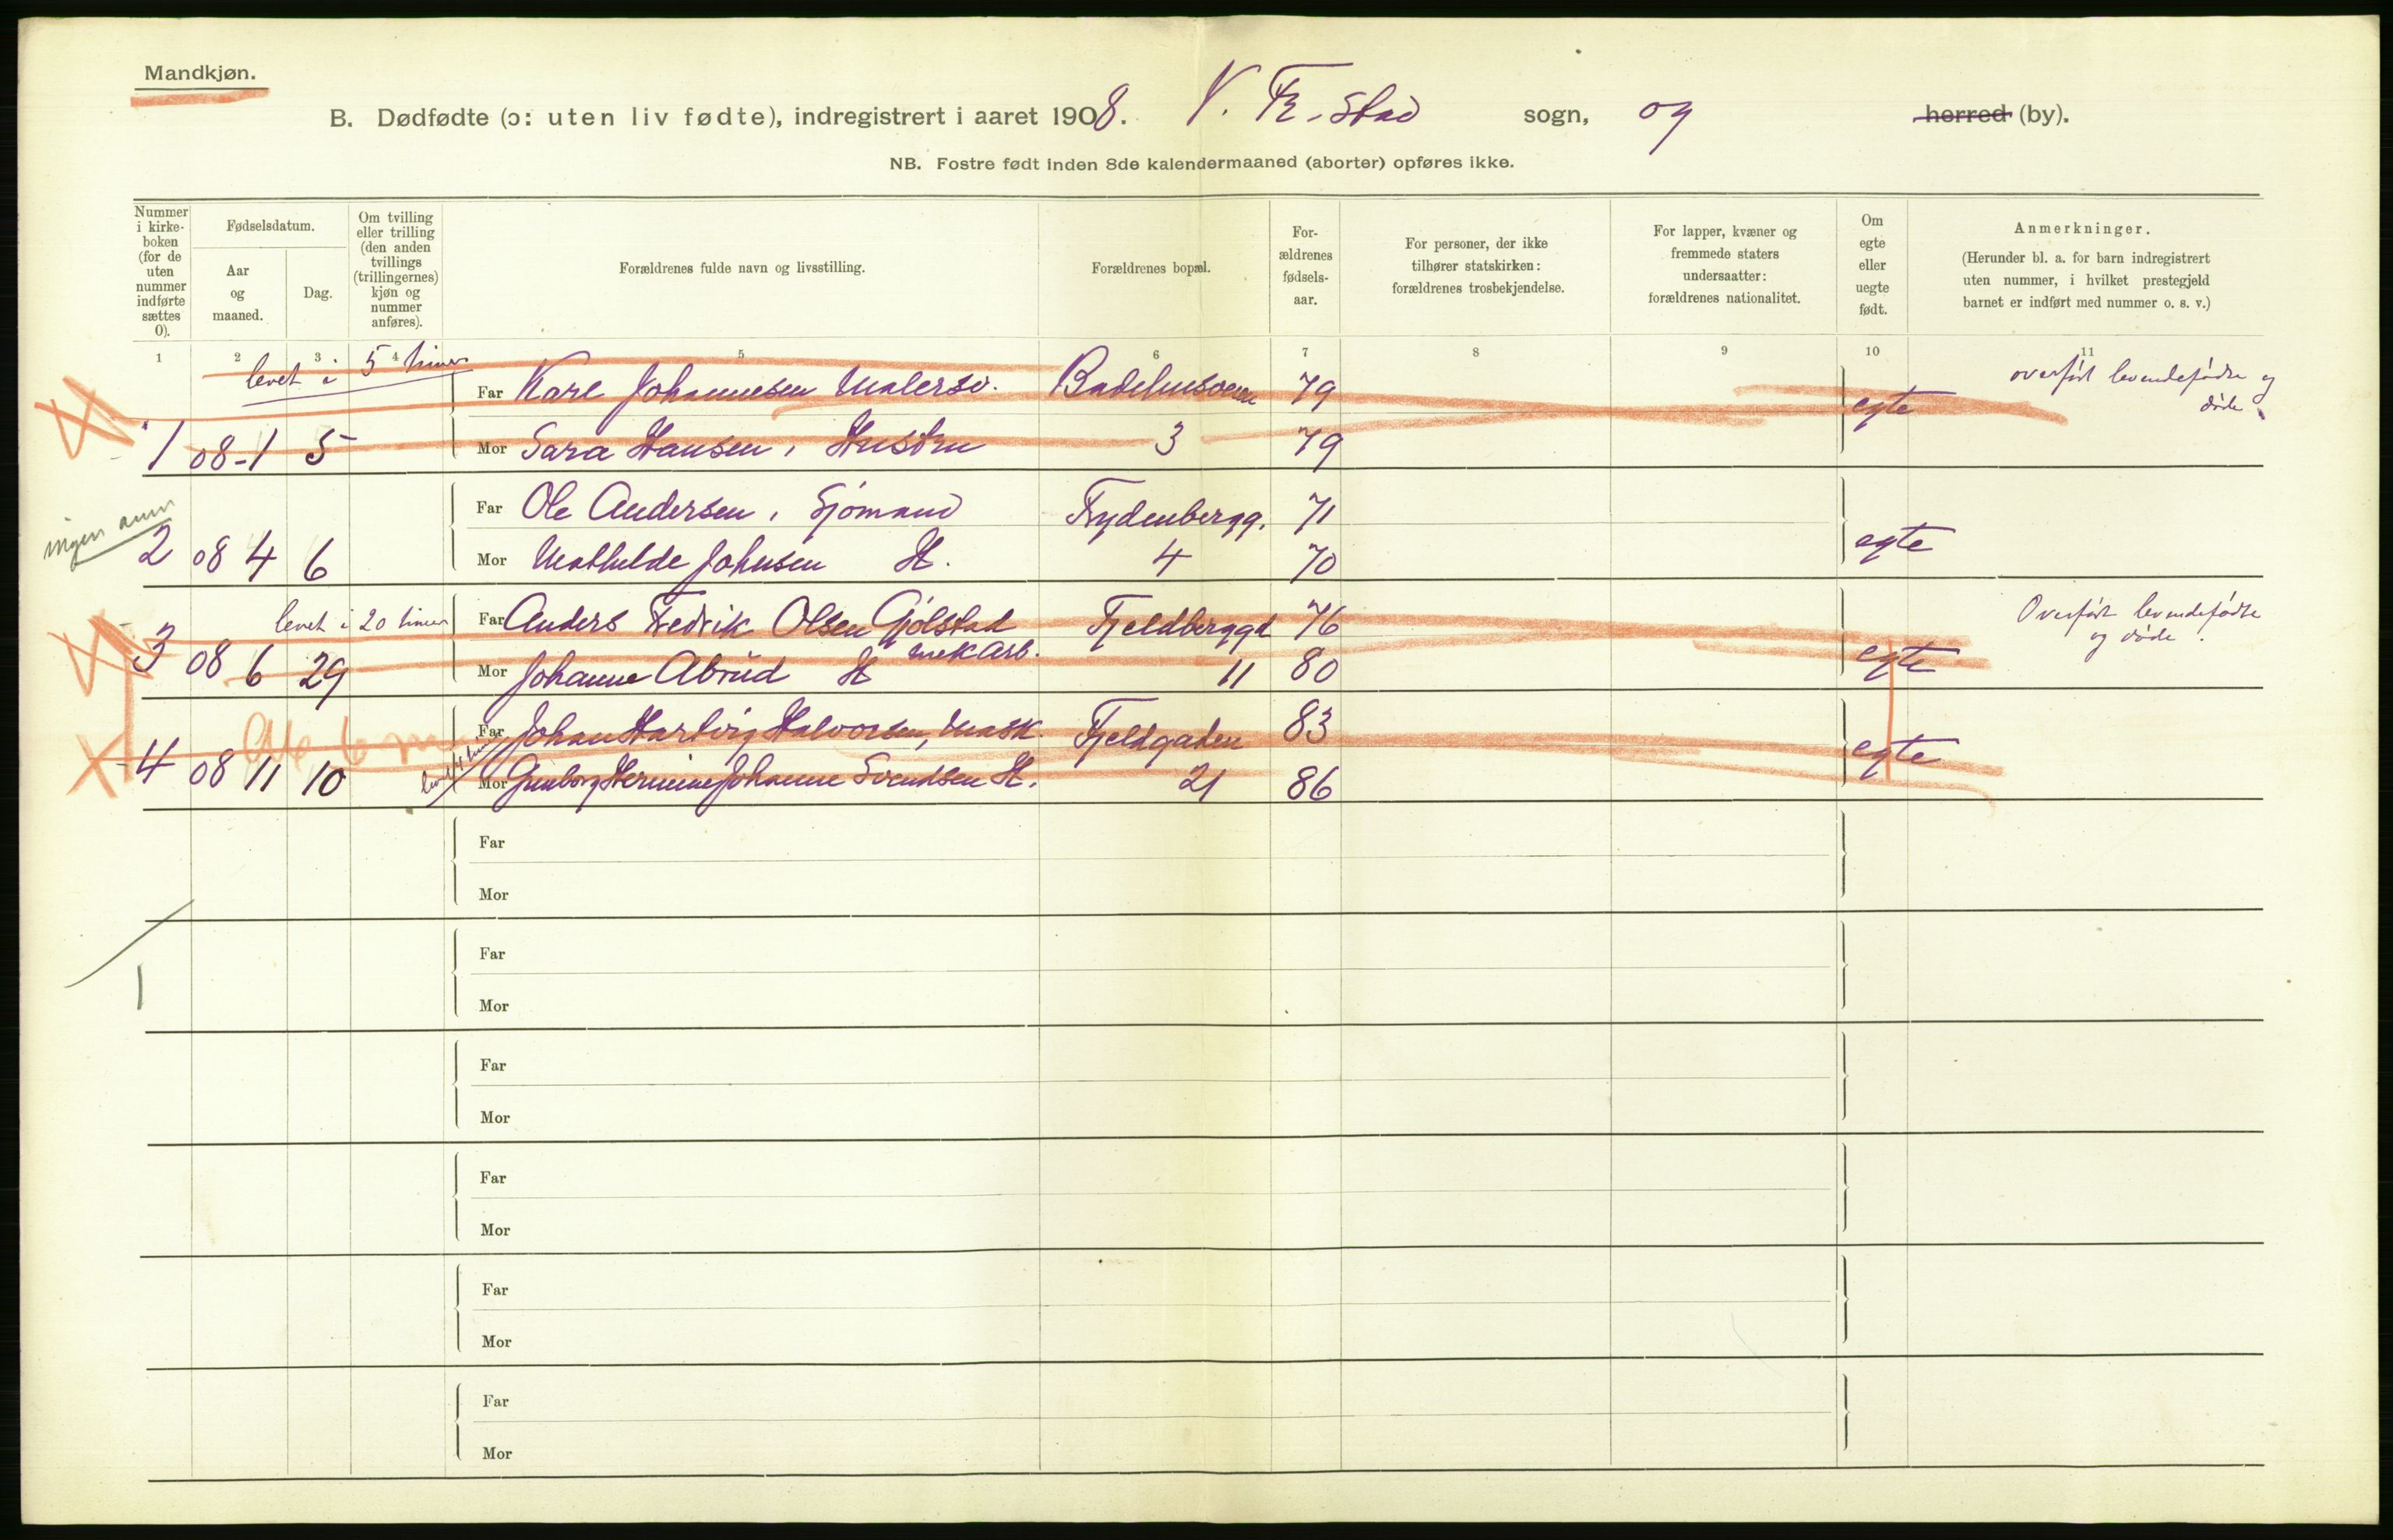 Mandkjøn.
B. Dødfødte (ɔ: uten liv fødte), indregistrert i aaret 1908. V. Fr.stad sogn, og herred (by).
NB. Fostre født inden 8de kalendermaaned (aborter) opføres ikke.
Nummer i kirke-boken (for de uten nummer indførte sættes 0).
Fødselsdatum.
Aar og maaned.
Dag.
Om tvilling eller trilling (den anden tvillings (trillingernes) kjøn og nummer anføres).
Forældrenes fulde navn og livsstilling.
Forældrenes bopæl.
For-ældrenes fødsels-aar.
For personer, der ikke tilhører statskirken: forældrenes trosbekjendelse.
For lapper, kvæner og fremmede staters undersaatter: forældrenes nationalitet.
Om egte eller uegte født.
Anmerkninger.
(Herunder bl. a. for barn indregistrert uten nummer, i hvilket prestegjeld barnet er indført med nummer o. s. v.)
1 2 3 4 5 6 7 8 9 10 11
levet i 5 timer
Far Karl Johannesen Malersv. Badehusveien 79 egte overført levendefødte og døde
1 08-1 5 Mor Sara Hansen, Hustru 3 79
ingen anm
Far Ole Andersen, Sjømand Frydenbergg. 71
2 08 4 6 Mor Mathilde Johnsen H. 4 70 egte
levet i 20 timer Far Anders Fredrik Olsen Gjölstad Fjeldberggd 76 Overført levendefødte og døde.
mek Arb.
3 08 6 29 Mor Johanne Abrud H 11 80 egte
Far Johan Hartvig Halvorsen, Mask. Fjeldgaden 83 egte
4 08 11 10 Mor Gunborg Hermine Johanne Svendsen H. 21 86
Far
Mor
Far
1
Mor
Far
Mor
Far
Mor
Far
Mor
Far
Mor